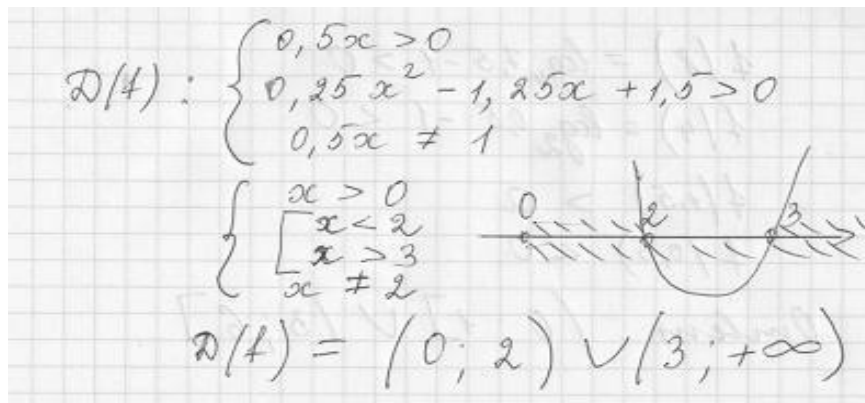 D(f) : { 0,5x > 0
0,25x² - 1,25x + 1,5 > 0
0,5x ≠ 1
{ x > 0
[ x < 2
x > 3
x ≠ 2
0 2 3
D(f) = (0; 2) ∪ (3; +∞)